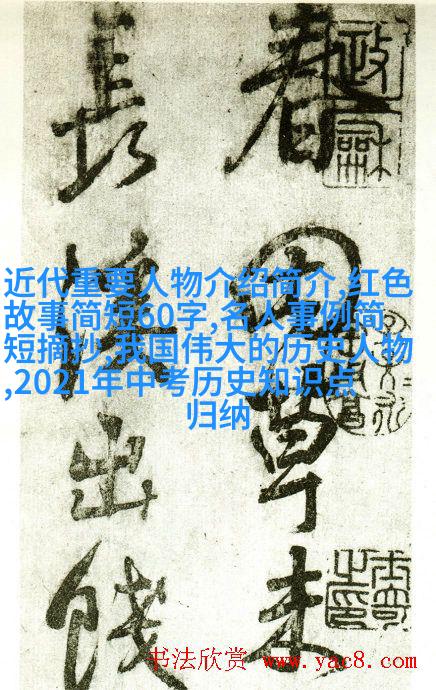 春草未
長出
近代重要人物介绍简介,红色
故事简短60字,名人事例简
短摘抄,我国伟大的历史人物
,2021年中考历史知识点
归纳
书法欣赏 www.yac8.com